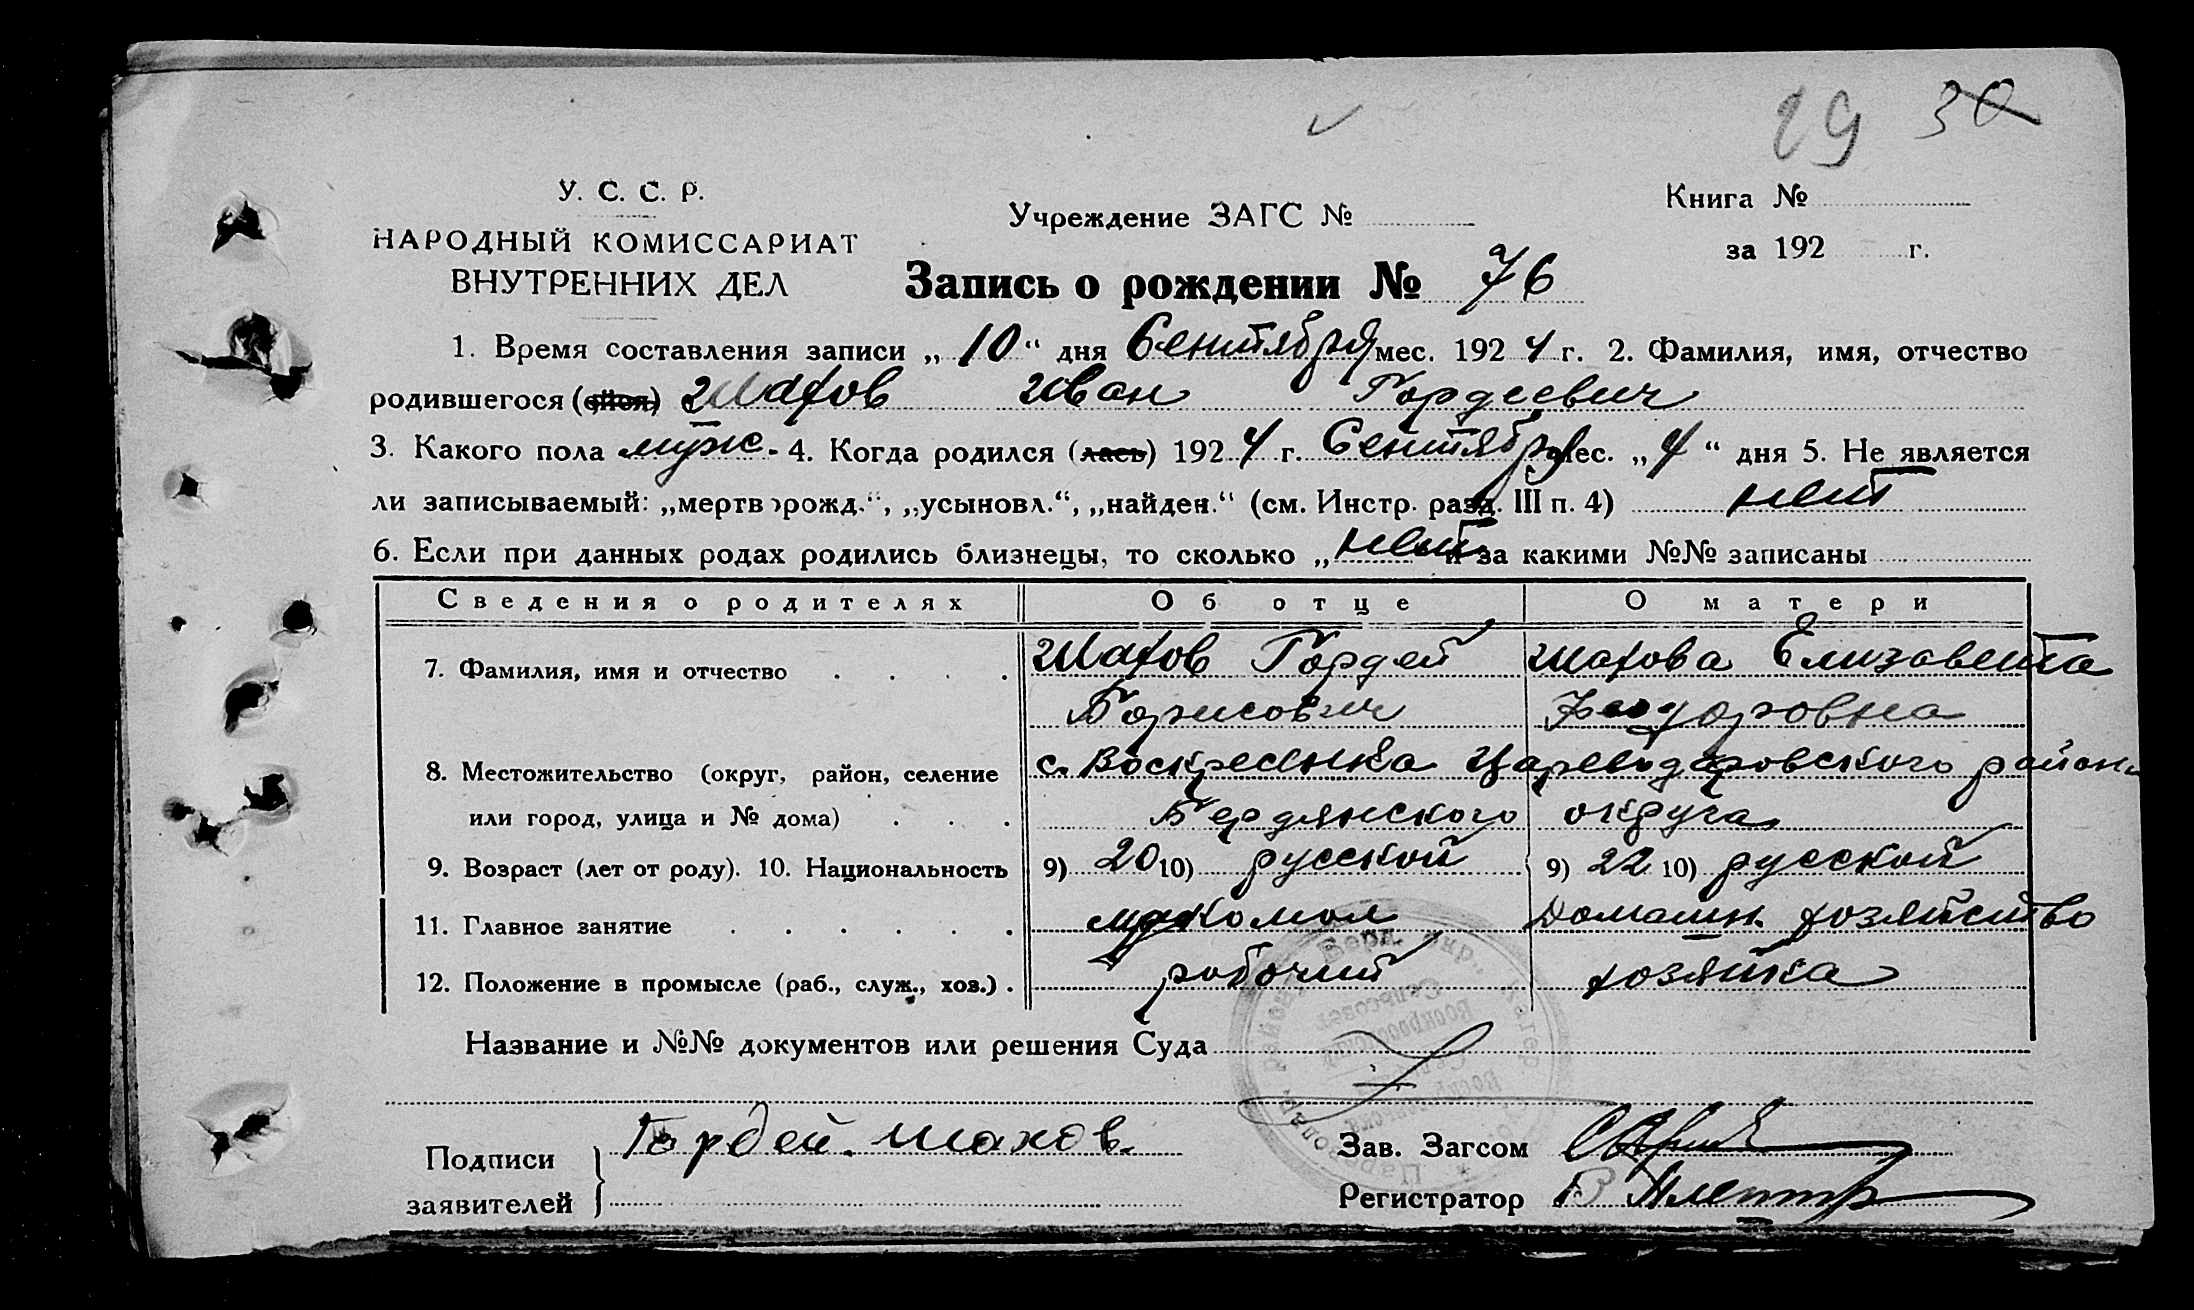 29 30
У. С. С. Р.
НАРОДНЫЙ КОМИССАРИАТ
ВНУТРЕННИХ ДЕЛ
Учреждение ЗАГС №
Книга №
за 192 г.
Запись о рождении № 76
1. Время составления записи „10“ дня Сентября мес. 1924 г. 2. Фамилия, имя, отчество
родившегося (ейся) Шахов Иван Гордеевич
3. Какого пола муж. 4. Когда родился (лась) 1924 г. Сентября мес. „4“ дня 5. Не является
ли записываемый: „мертворожд.“, „усыновл.“, „найден.“ (см. Инстр. разд. III п. 4) нет
6. Если при данных родах родились близнецы, то сколько „нет и за какими №№ записаны
Сведения о родителях Об отце О матери
7. Фамилия, имя и отчество Шахов Гордей Шахова Елизавета
Борисович Феодоровна
8. Местожительство (округ, район, селение с. Воскресенка Цареводаровского района
или город, улица и № дома) Бердянского округа
9. Возраст (лет от роду). 10. Национальность 9) 20 10) русской 9) 22 10) русской
11. Главное занятие мукомол Домашн. хозяйство
12. Положение в промысле (раб., служ., хоз.) рабочий хозяйка
Название и №№ документов или решения Суда
Подписи
заявителей
Гордей Шахов.
Зав. Загсом
Регистратор